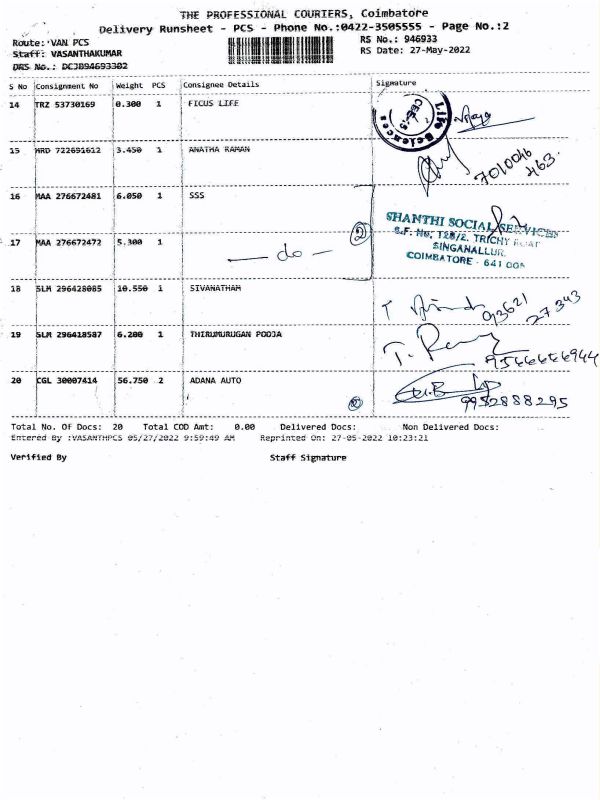 THE PROFESSIONAL COURIERS, Coimbatore
Delivery Runsheet - PCS - Phone No.:0422-3505555 - Page No.:2
Route: VAN PCS
RS No.: 946933
Staff: VASANTHAKUMAR
RS Date: 27-May-2022
DRS No.: DCJB94693302
S No Consignment No Weight PCS Consignee Details Signature
14 TRZ 53730169 0.300 1 FICUS LIFE
Life Sciences
CBE-5
15 MRD 722691612 3.450 1 ANATHA RAMAN
7010046
463
16 MAA 276672481 6.050 1 SSS
SHANTHI SOCIAL SERVICES
S.F. No. 128/2, TRICHY ROAD
SINGANALLUR,
COIMBATORE - 641 005
17 MAA 276672472 5.300 1
— do —
2
18 SLM 296428085 10.550 1 SIVANATHAM
93621
27343
19 SLM 296418587 6.200 1 THIRUMURUGAN POOJA
9566666944
20 CGL 30007414 56.750 2 ADANA AUTO
9952888295
Total No. Of Docs: 20 Total COD Amt: 0.00 Delivered Docs: Non Delivered Docs:
Entered By :VASANTHPCS 05/27/2022 9:59:49 AM Reprinted On: 27-05-2022 10:23:21
Verified By Staff Signature